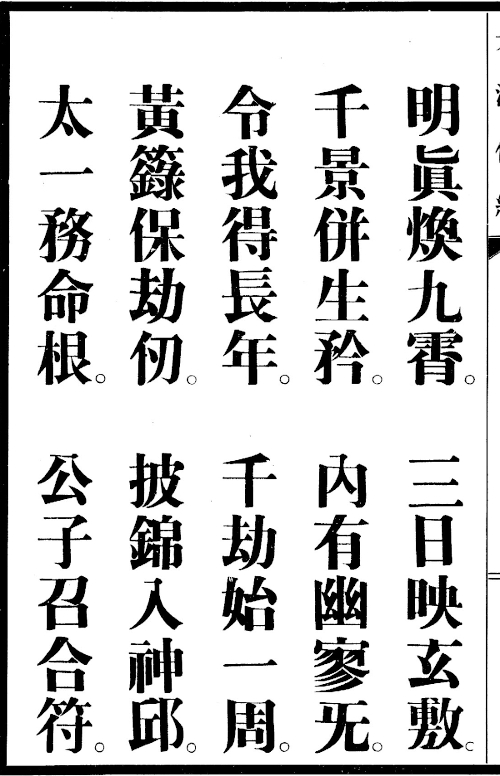 明眞煥九霄。三日映玄敷。
千景併生矜。內有幽寥旡。
令我得長年。千劫始一周。
黃籙保劫仞。披錦入神邱。
太一務命根。公子召合符。